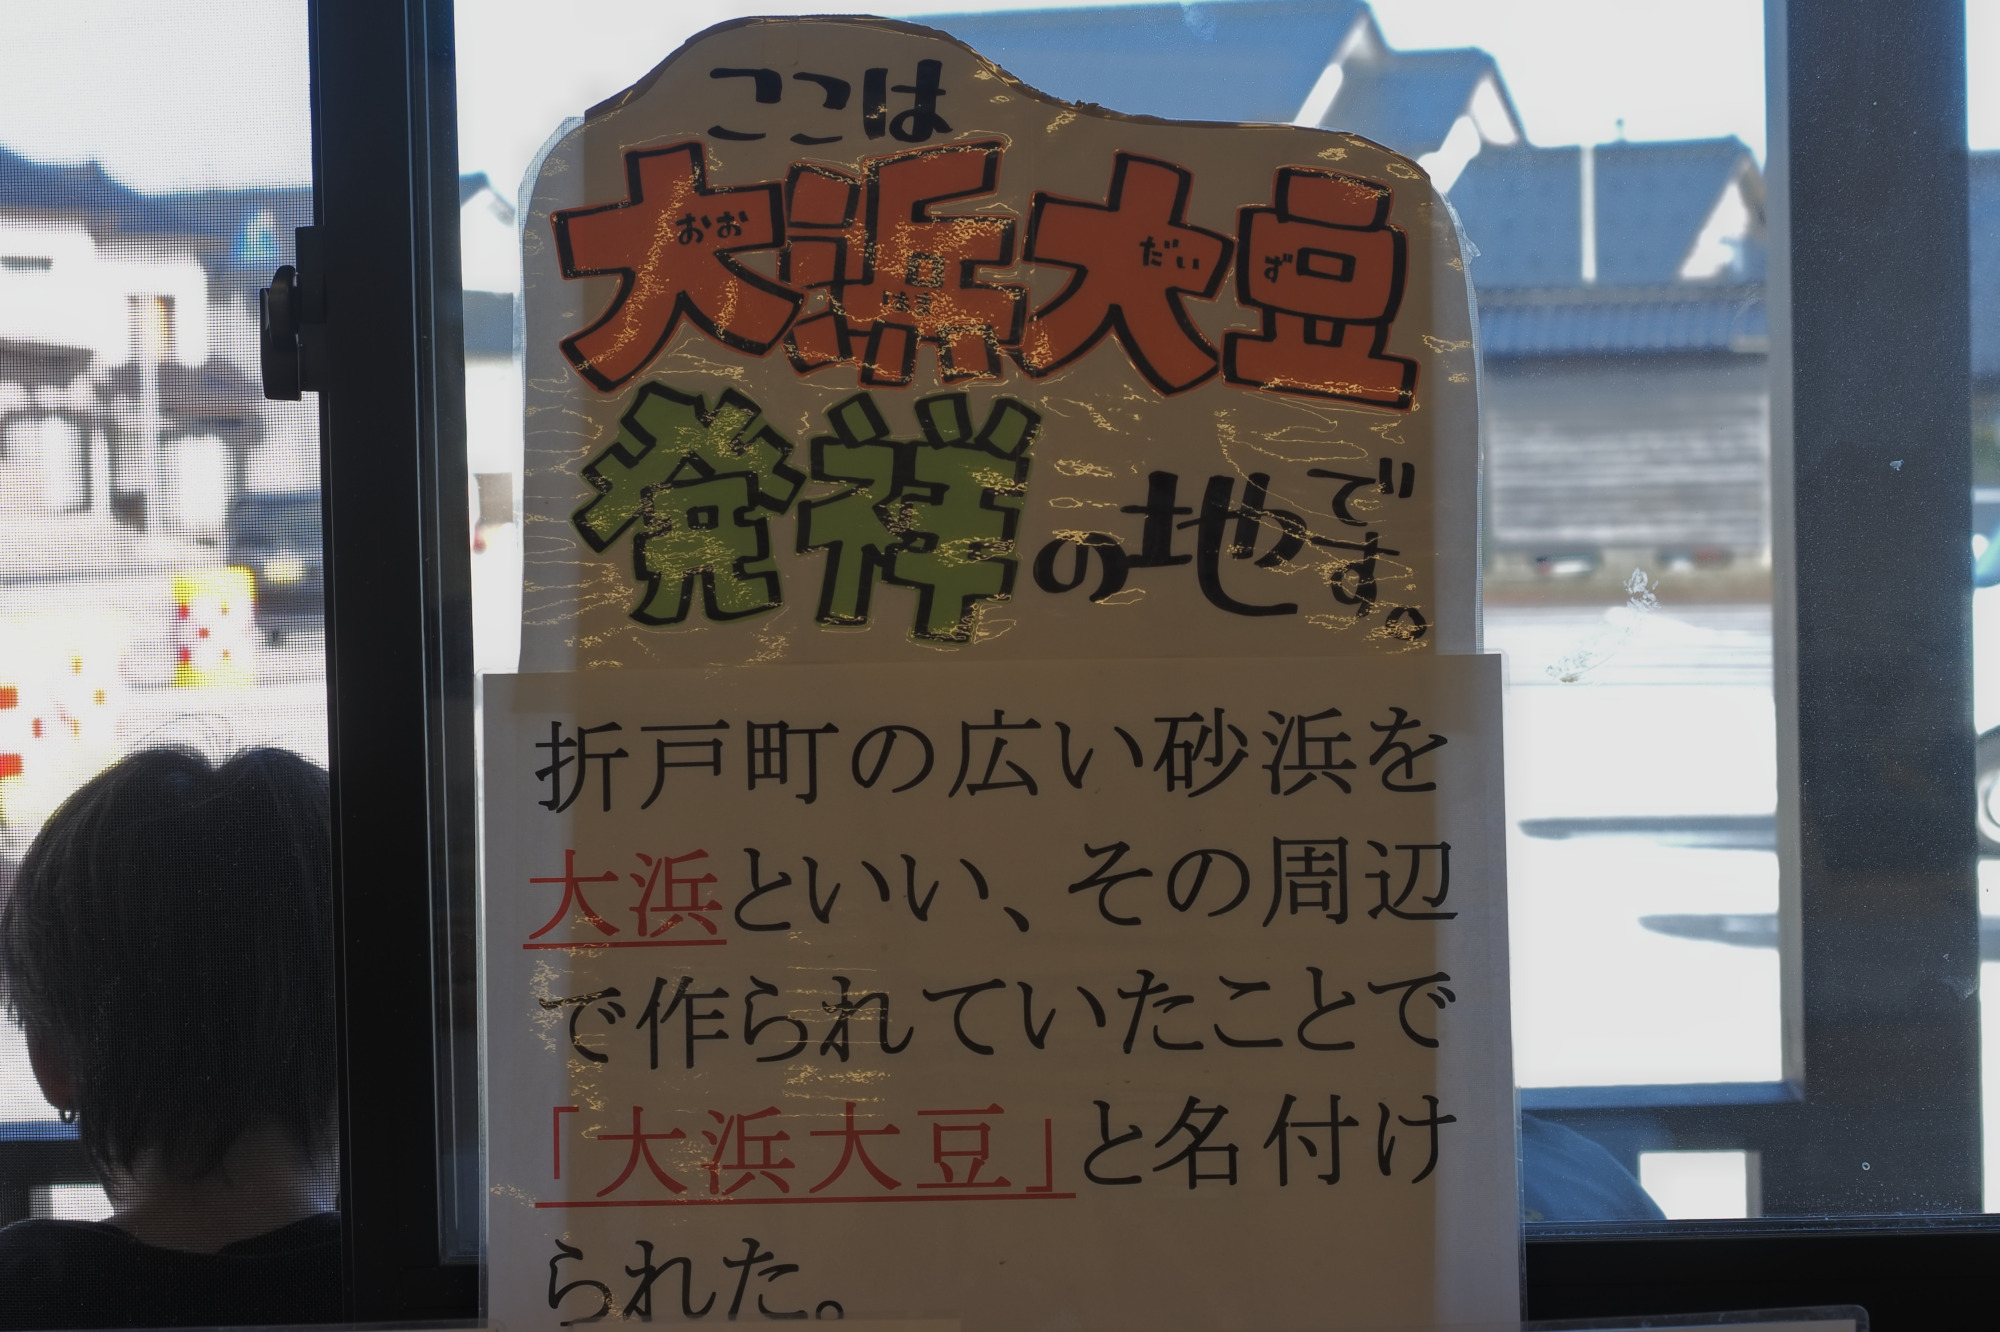 ここは
大浜大豆
おお はま だい ず
発祥の地です。
折戸町の広い砂浜を
大浜といい、その周辺
で作られていたことで
「大浜大豆」と名付け
られた。